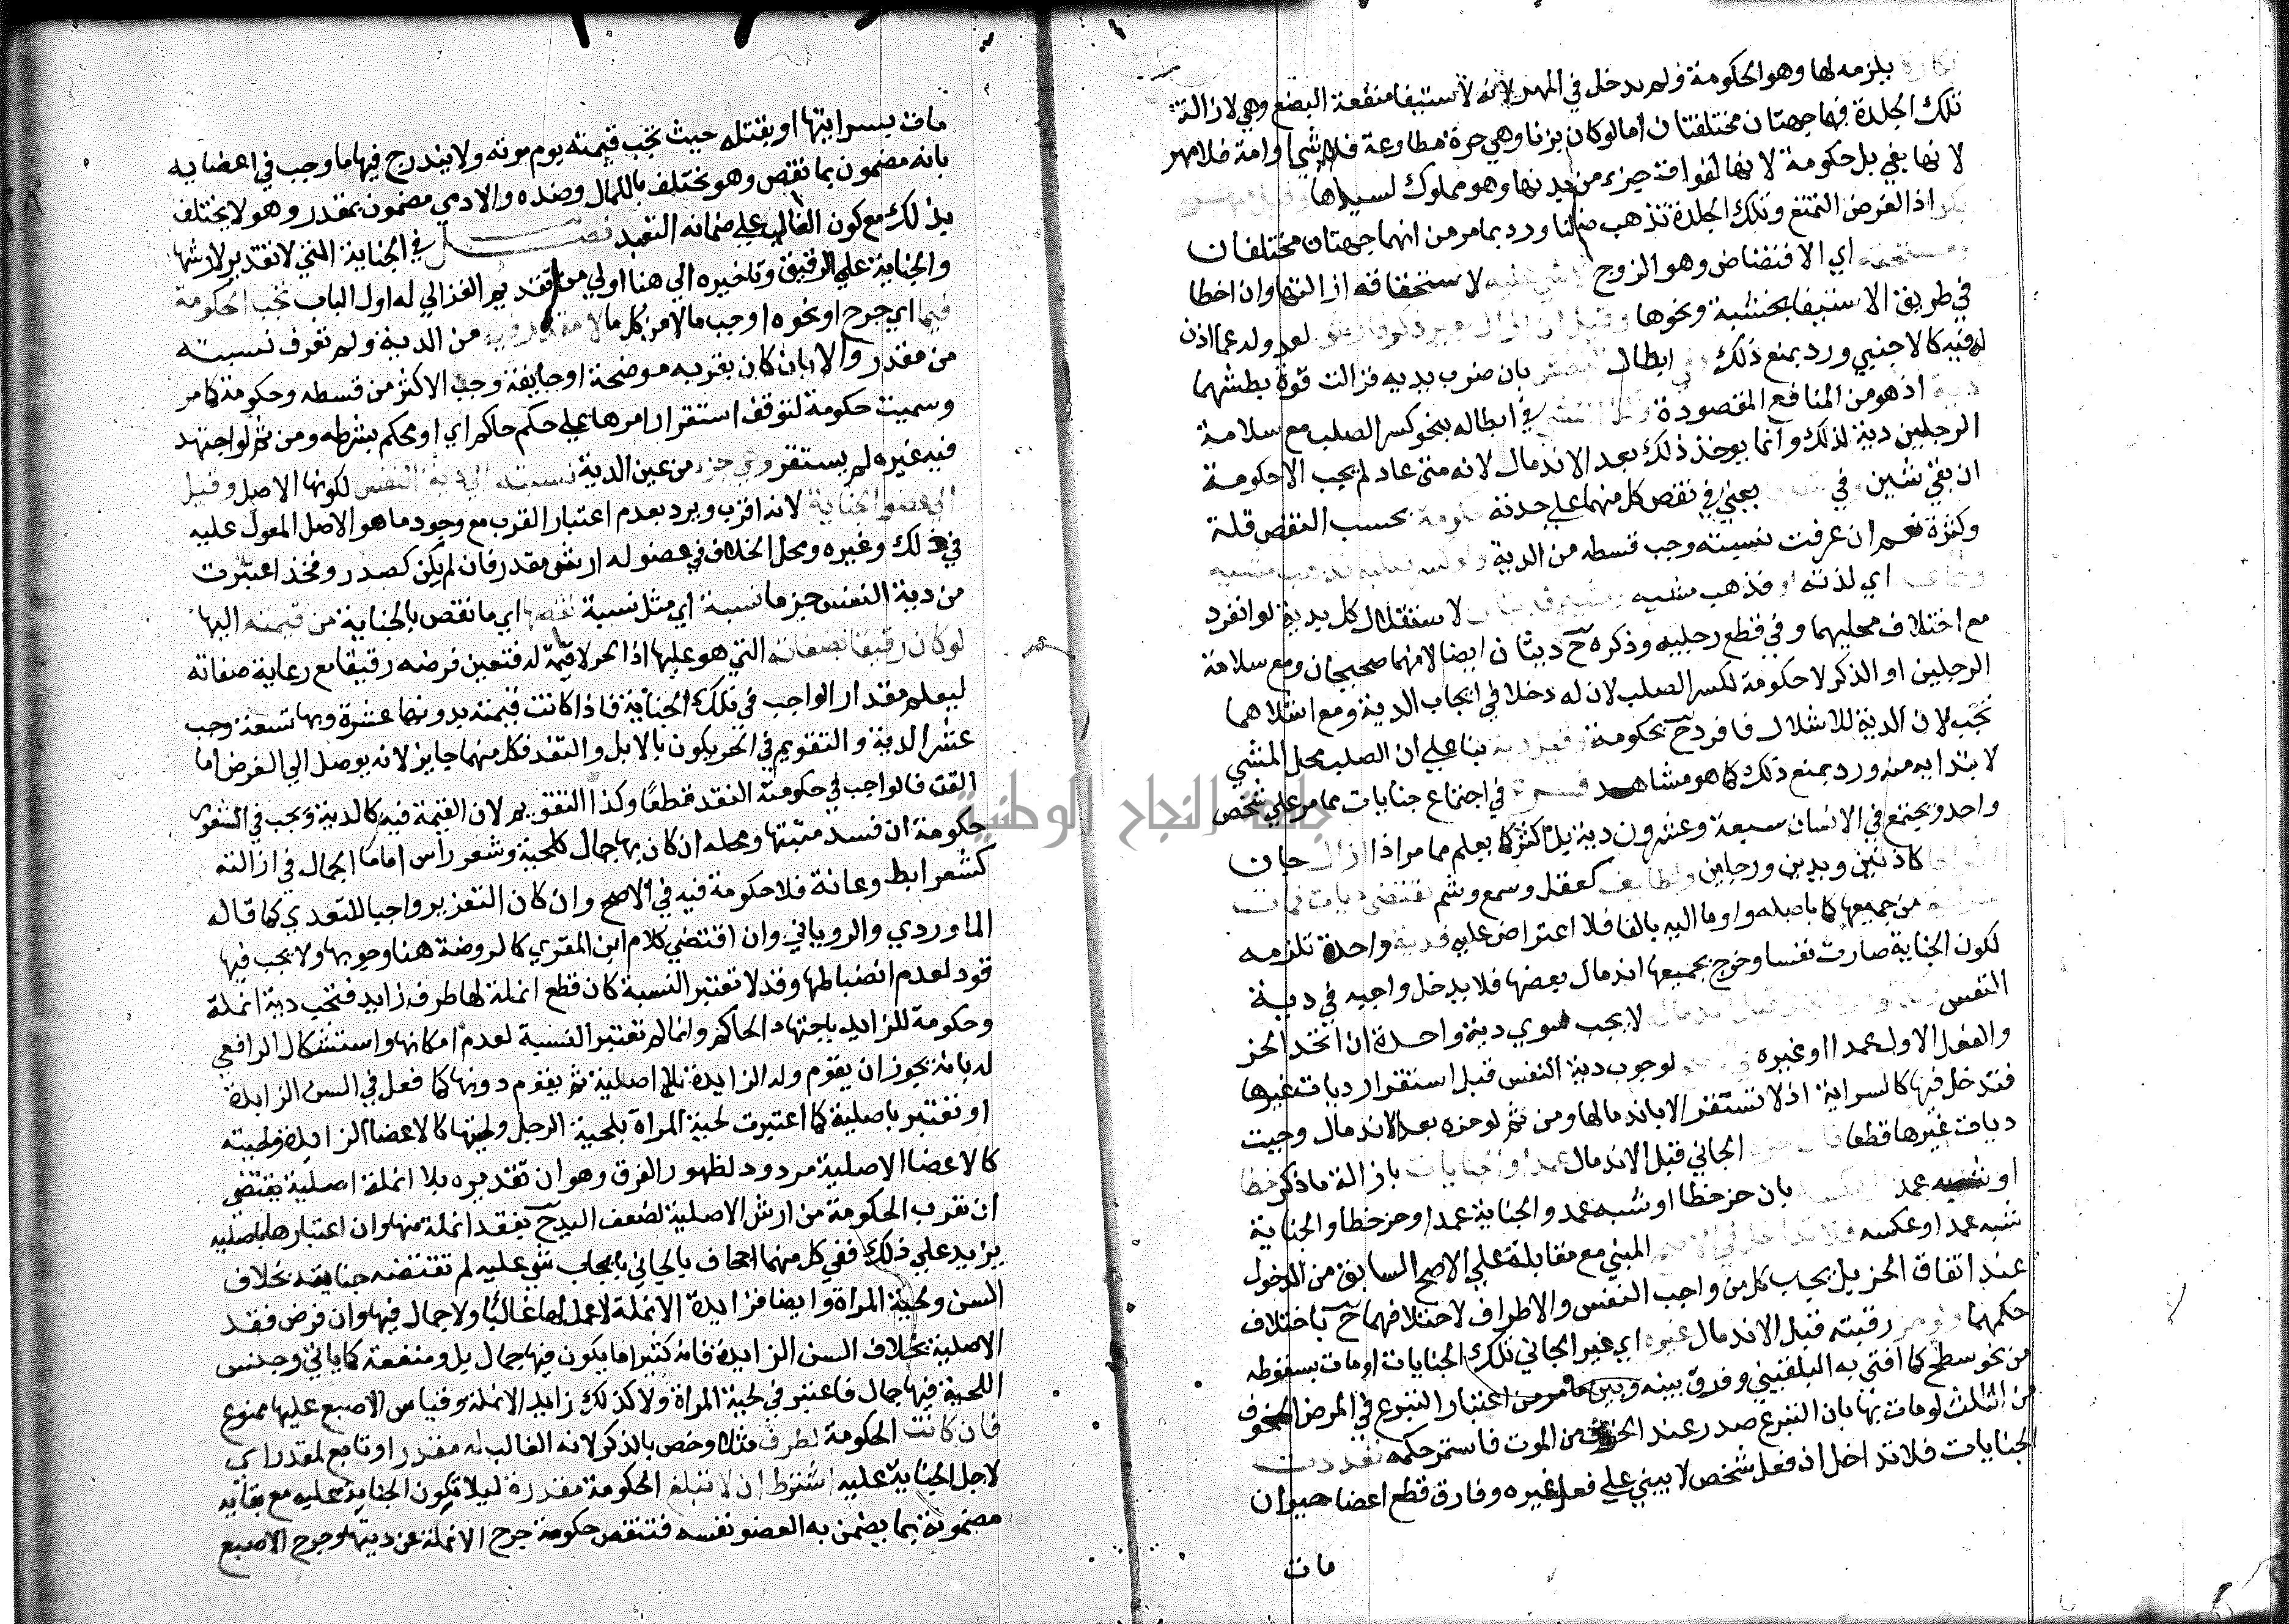 بكارة يلزمه لها وهو الحكومة ولم يدخل في المهر لانه لاستيفا منفعة البضع وهي لازالة
تلك الجلدة فهما جهتان مختلفتان اما لو كان بزنا وهي حرة مطاوعة فلا شي او امة فلا مهر
لانها بغي بل حكومة لانها لفوات جزء من بدنها وهو مملوك لسيدها
بكر اذ الغرض التمتع وتلك الجلدة تذهب ضمنا ورد بما مر من انهما جهتان مختلفتان
ومستحقه اي الافتضاض وهو الزوج لا شي عليه لاستحقاقه ازالتها وان اخطا
في طريق الاستيفا بخشبة ونحوها وقيل ان ازال بغير ذكر فارش لعدوله عما اذن
له فيه كالاجنبي ورد بمنع ذلك وفي ابطال البطش بان ضرب يديه فزالت قوة بطشهما
دية اذ هو من المنافع المقصودة وكذا المشي في ابطاله بنحو كسر الصلب مع سلامة
الرجلين دية لذلك وانما يوخذ ذلك بعد الاندمال لانه متى عاد لم يجب الا حكومة
ان بقي شين وفي يعني في نقص كل منهما على حدته حكومة بحسب النقص قلة
وكثرة نعم ان عرفت نسبته وجب قسطه من الدية ولو كسر صلبه فذهب مشيه
وجماعه اي لذته او فذهب مشيه ومنيه فديتان لاستقلال كل بدية لو انفرد
مع اختلاف محليهما وفي قطع رجليه وذكره ح ديتان ايضا لانهما صحيحان ومع سلامة
الرجلين او الذكر لا حكومة لكسر الصلب لان له دخلا في ايجاب الدية ومع اشلالهما
تجب لان الدية للاشلال فافردح بحكومة وقيل دية بنا على ان الصلب محل المشي
لابتدايه منه ورد بمنع ذلك كما هو مشاهد فرع في اجتماع جنايات مما مر على شخص
واحد ويجتمع في الانسان سبعة وعشرون دية بل اكثر كما يعلم مما مر اذا ازال جان
اطرافا كاذنين ويدين ورجلين ولطايف كعقل وسمع وشم تقتضي ديات فمات
سراية من جميعها كما باصله واوما اليه بالفا فلا اعتراض عليه فدية واحدة تلزمه
لكون الجناية صارت نفسا وخرج بجميعها اندمال بعضها فلا يدخل واجبه في دية
النفس وكذا لو حزه الجاني قبل اندماله لا يجب سوي دية واحدة ان اتحد الحز
والفعل الاول عمدا او غيره في الاصح لوجوب دية النفس قبل استقرار ديات غيرها
فتدخل فيها كالسراية اذ لا تستقر الا باندمالها ومن ثم لو حزه بعد الاندمال وجبت
ديات غيرها قطعا فان حز الجاني قبل الاندمال عمدا والجنايات بازالة ما ذكر خطا
او شبه عمد او عكسه بان حز خطا او شبه عمد والجناية عمدا او حز خطا والجناية
شبه عمد او عكسه فلا تداخل في الاصح المبني مع مقابله على الاصح السابق من الدخول
عند اتفاق الحز بل يجب كل من واجب النفس والاطراف لاختلافهما ح باختلاف
حكمهما ولو حز رقبته قبل الاندمال غيره اي غير الجاني تلك الجنايات او مات بسقوطه
من نحو سطح كما افتى به البلقيني وفرق بينه وبين ما مر من اعتبار التبرع في المرض المخوف
من الثلث لو مات بها بان التبرع صدر عند الخوف من الموت فاستمر حكمه تعددت
الجنايات فلا تداخل اذ فعل شخص لا يبنى على فعل غيره وفارق قطع اعضا حيوان
مات
مات بسرايتها او بقتله حيث تجب قيمته يوم موته ولا يندرج فيها ما وجب في اعضايه
بانه مضمون بما نقص وهو يختلف بالكمال وضده والادمي مضمون بمقدر وهو لا يختلف
بذلك مع كون الغالب على ضمانه التعبد فصل في الجناية التي لا تقدير لارشها
والجناية على الرقيق وتاخيره الى هنا اولى من تقديم الغزالي له اول الباب تجب الحكومة
فيما اي جرح او نحوه اوجب مالا من كل ما لا مقدر فيه من الدية ولم تعرف نسبته
من مقدر والا بان كان بقربه موضحة او جايفة وجب الاكثر من قسطه وحكومة كما مر
وسميت حكومة لتوقف استقرار امرها على حكم حاكم اي او محكم بشرطه ومن ثم لو اجتهد
فيه غيره لم يستقر وهي جزء من عين الدية نسبته الى دية النفس لكونها الاصل وقيل
الى عضو الجناية لانه اقرب ويرد بعدم اعتبار القرب مع وجود ما هو الاصل المعول عليه
في ذلك وغيره ومحل الخلاف في عضو له ارش مقدر فان لم يكن كصدر وفخذ اعتبرت
من دية النفس جزما نسبة اي مثل نسبة نقصها اي ما نقص بالجناية من قيمته اليها
لو كان رقيقا بصفاته التي هو عليها اذ الحر لا قيمة له فتعين فرضه رقيقا مع رعاية صفاته
ليعلم مقدار الواجب في تلك الجناية فاذا كانت قيمته بدونها عشرة وبها تسعة وجب
عشر الدية والتقويم في الحر يكون بالابل والنقد فكل منهما جايز لانه يوصل الى الغرض اما
القن فالواجب في حكومته النقد قطعا وكذا التقويم لان القيمة فيه كالدية وتجب في الشعور
حكومة ان فسد منبتها ومحله ان كان بها جمال كلحية وشعر راس اما ما الجمال في ازالته
كشعر ابط وعانة فلا حكومة فيه في الاصح وان كان التعزير واجبا للتعدي كما قاله
الماوردي والروياني وان اقتضى كلام ابن المقري كالروضة هنا وجوبها ولا يجب فيها
قود لعدم انضباطها وقد لا تعتبر النسبة كان قطع انملة لها طرف زايد فتجب دية انملة
وحكومة للزايد باجتهاد الحاكم وانما لم تعتبر النسبة لعدم امكانها واستشكال الرافعي
له بانه يجوز ان يقوم وله الزايدة بلا اصلية ثم يقوم دونها كما فعل في السن الزايدة
او تعتبر باصلية كما اعتبرت لحية المراة بلحية الرجل ولحيتها كالاعضا الزايدة ولحيته
كالاعضا الاصلية مردود لظهور الفرق وهو ان تقديره بلا انملة اصلية يقتضي
ان تقرب الحكومة من ارش الاصلية لضعف اليد ح بفقد انملة منها وان اعتبارها باصلية
يزيد على ذلك ففي كل منهما اجحاف بالجاني بايجاب شي عليه لم تقتضه جنايته بخلاف
السن ولحية المراة وايضا فزايدة الانملة لا عمل لها غالبا ولا جمال فيها وان فرض فقد
الاصلية بخلاف السن الزايدة فانه كثيرا ما يكون فيها جمال بل ومنفعة كما ياتي وجنس
اللحية فيها جمال فاعتبر في لحية المراة ولا كذلك زايد الانملة وقياس الاصبع عليها ممنوع
فان كانت الحكومة لطرف مثلا وخص بالذكر لانه الغالب له مقدر او تابع لمقدر اي
لاجل الجناية عليه اشترط ان لا تبلغ الحكومة مقدره ليلا تكون الجناية عليه مع بقايه
مضمونة بما يضمن به العضو نفسه فتنقص حكومة جرح الانملة عن ديتها وجرح الاصبع
جامعة النجاح الوطنية